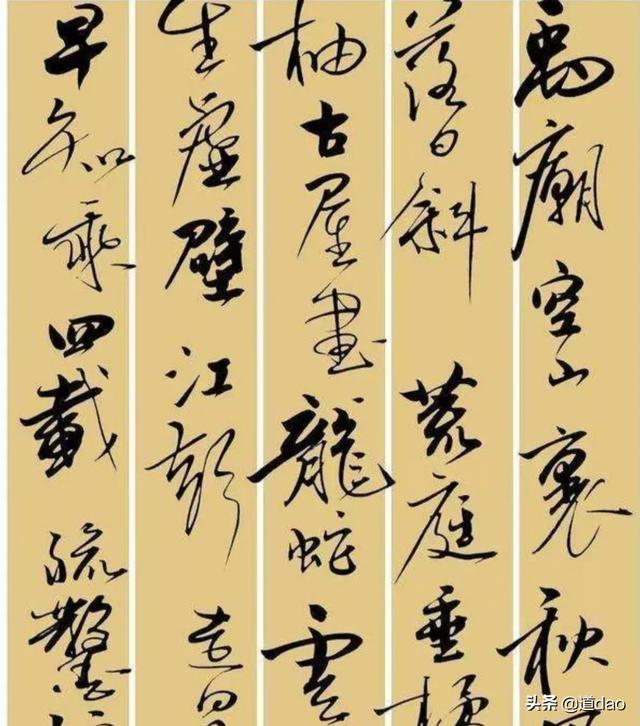 禹廟空山裏秋
落日斜荒庭垂橘
柚古屋畫龍蛇雲
生虛壁江
早知乘四載疏鑿
头条 @道dao